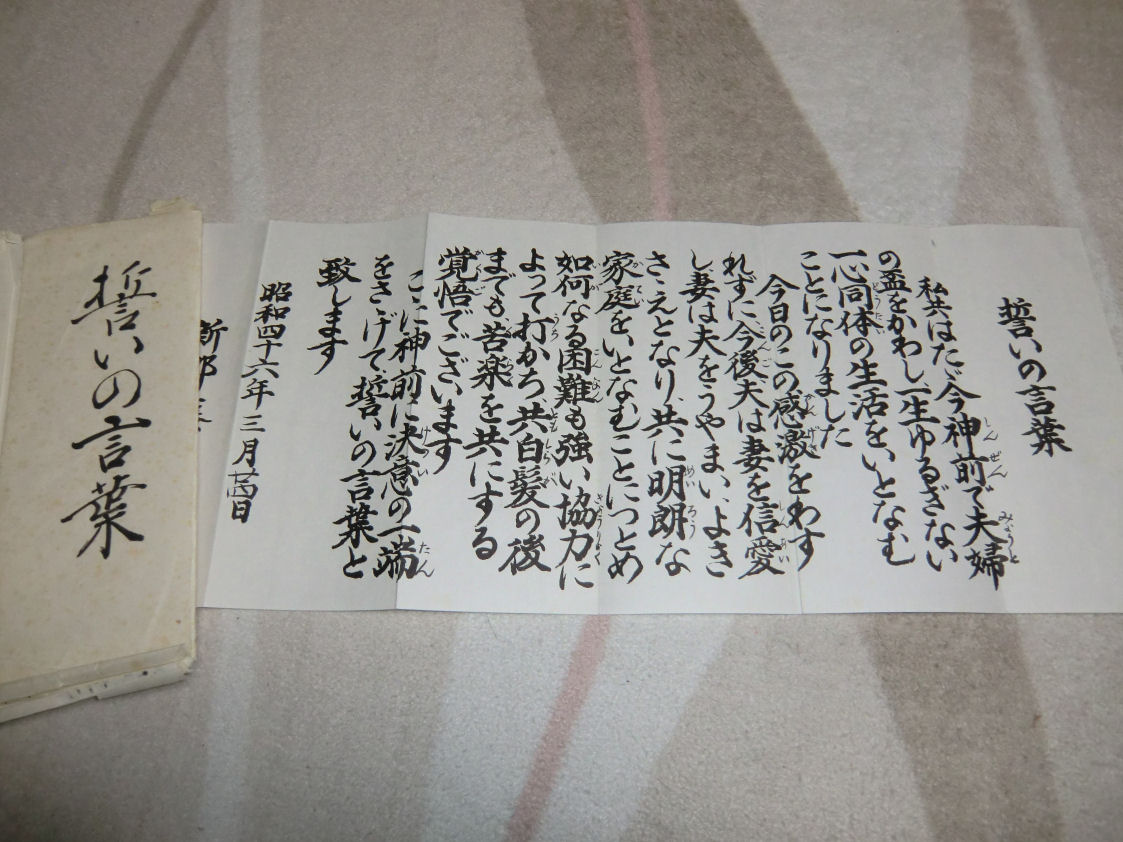 誓いの言葉
私共はたゞ今神前で夫婦
の盃をかわし、一生ゆるぎない
一心同体の生活をいとなむ
ことになりました
今日のこの感激をわす
れずに今後夫は妻を信愛
し妻は夫をうやまい、よき
さゝえとなり、共に明朗な
家庭をいとなむことにつとめ
如何なる困難も強い協力に
よって打かち共白髪の後
までも苦楽を共にする
覚悟でございます
こゝに神前に決意の一端
をさゝげて誓いの言葉と
致します
昭和四十六年三月廿四日
新郎
誓いの言葉